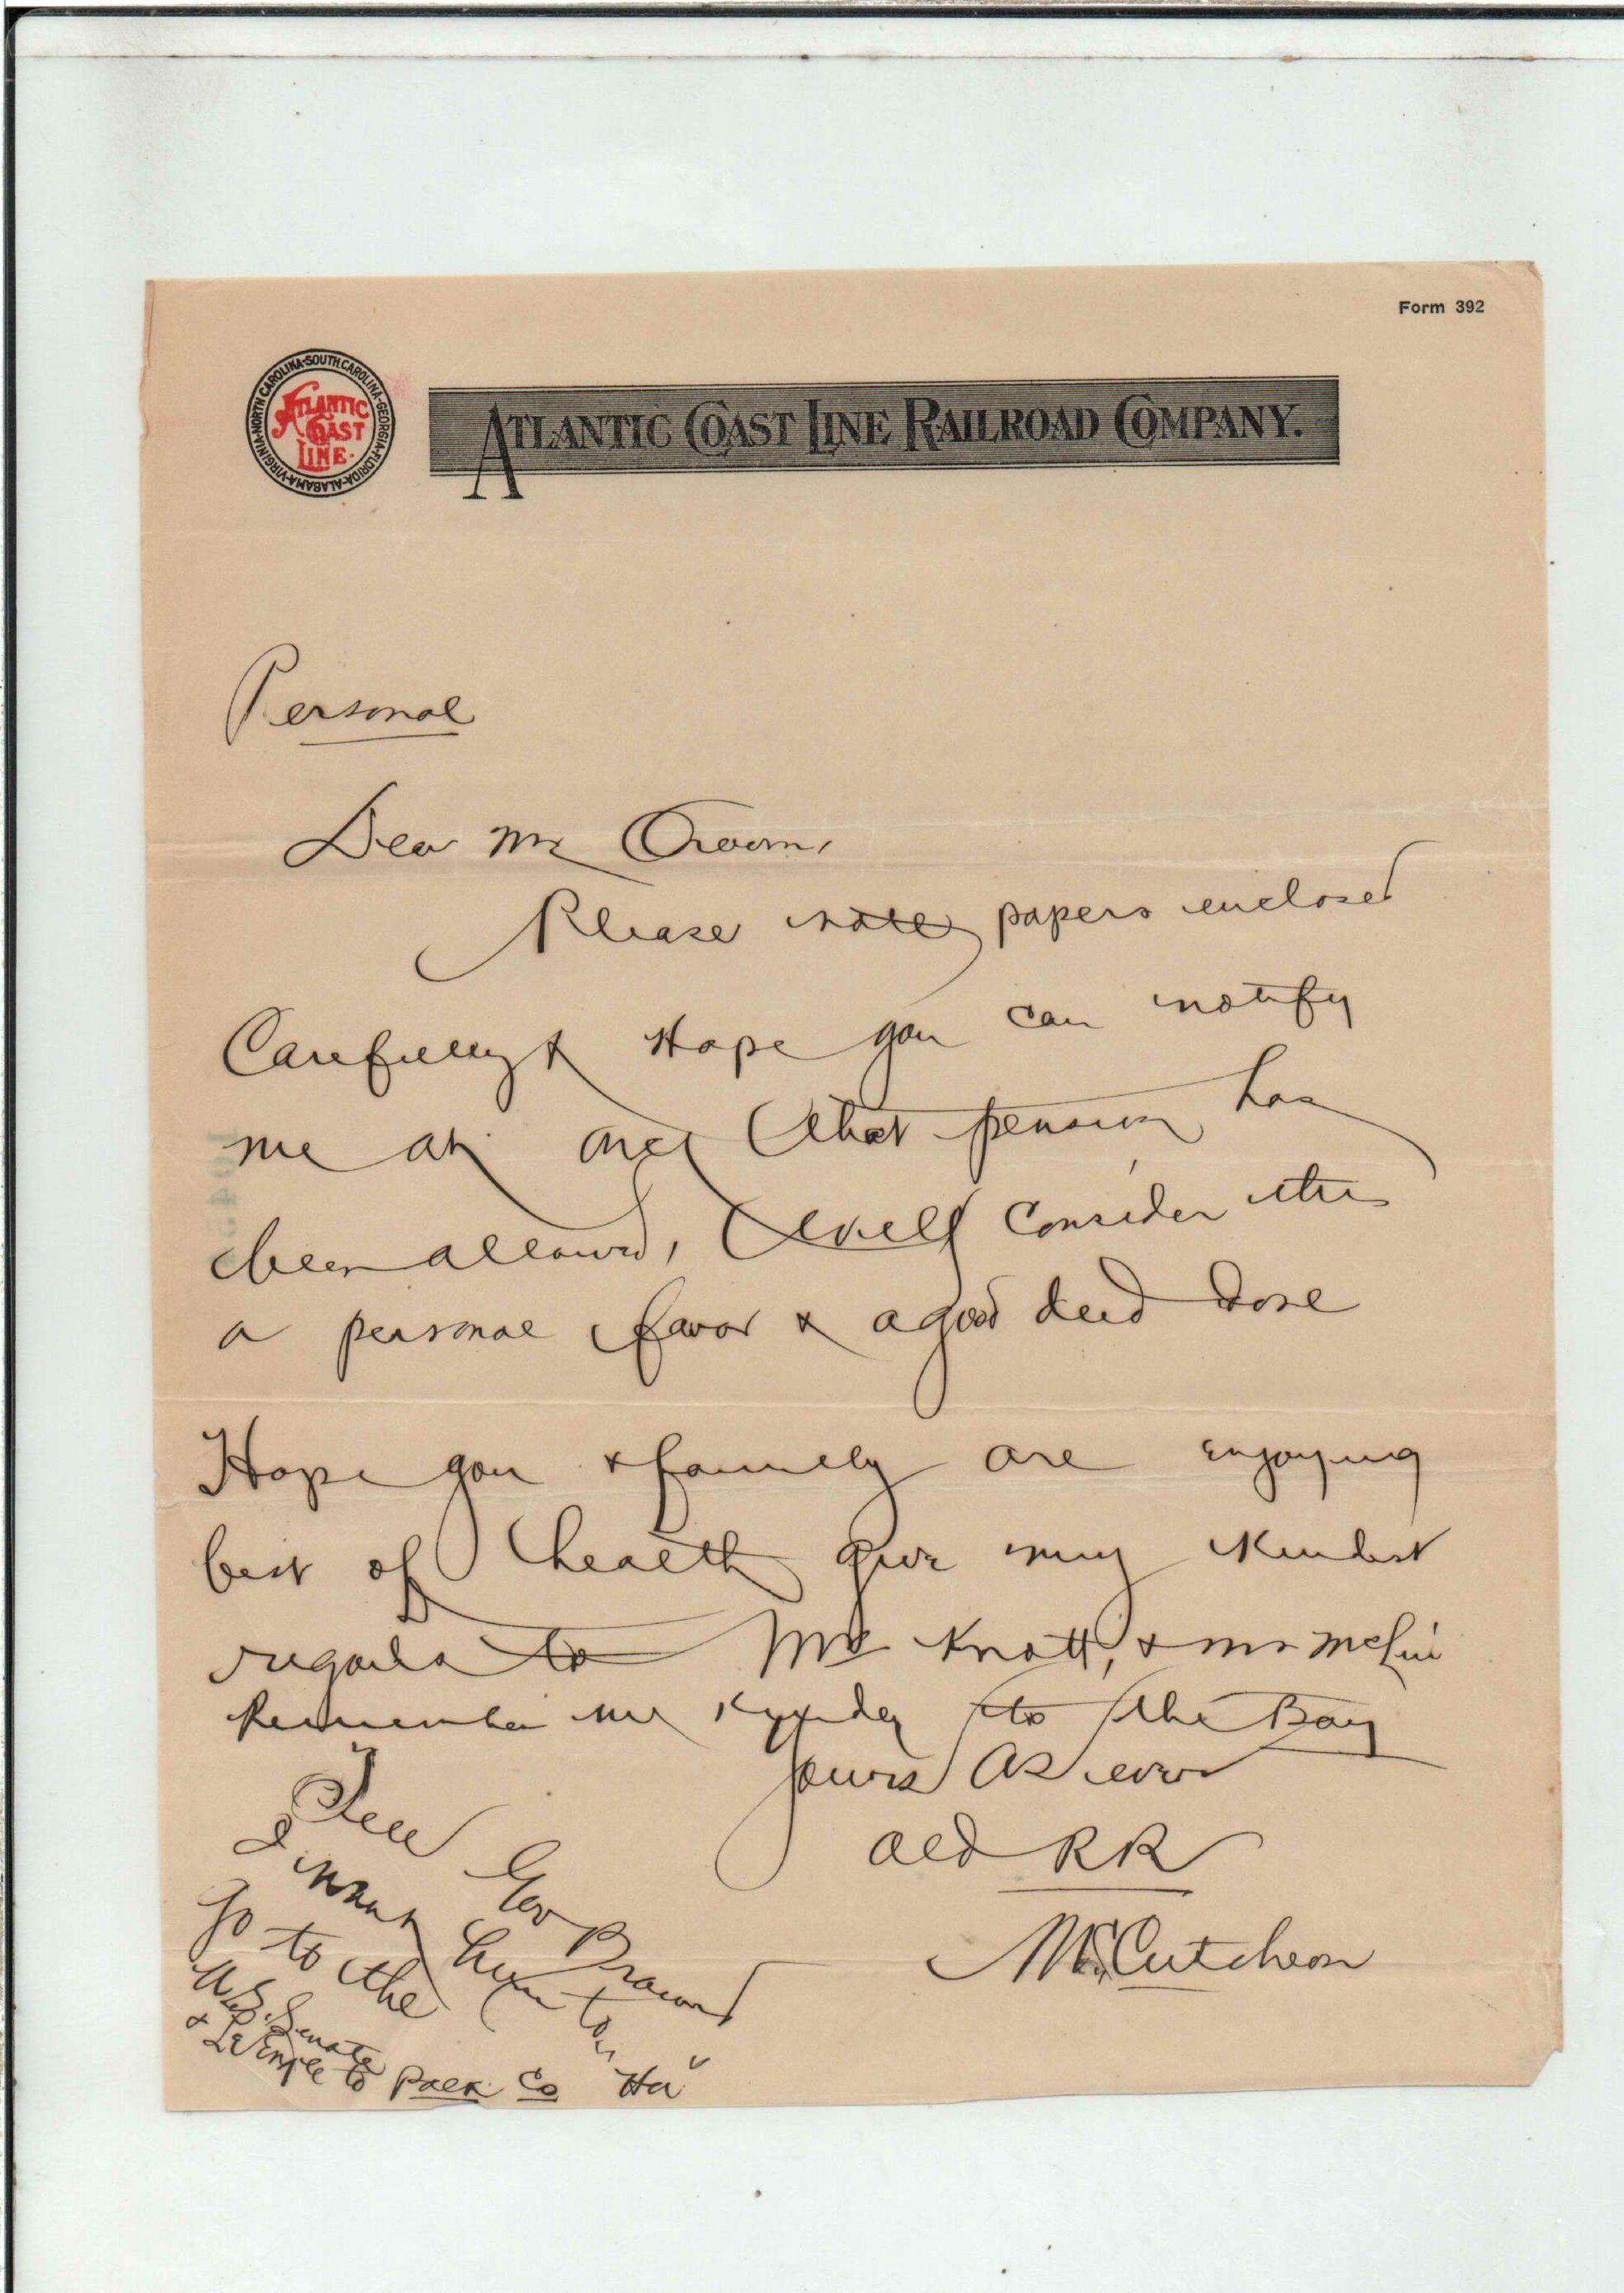 Form 392
VIRGINIA-NORTH CAROLINA-SOUTH CAROLINA-GEORGIA-FLORIDA-ALABAMA-
ATLANTIC
COAST
LINE.
ATLANTIC COAST LINE RAILROAD COMPANY.
Personal
Dear Mr Croom,
Please note papers enclosed
Carefully & Hope you can notify
me at once that pension has
been allowed, will consider this
a personal favor & a good deed done
Hope you & family are enjoying
best of health give my kindest
regards to Mr Knott, & Mr McLin
Remember me kindly to the Boy
yours as ever
Old RR
McCutcheon
Tell Gov Broward
I want him to
go to the
U.S. Senate
& to Polk Co "Ha"